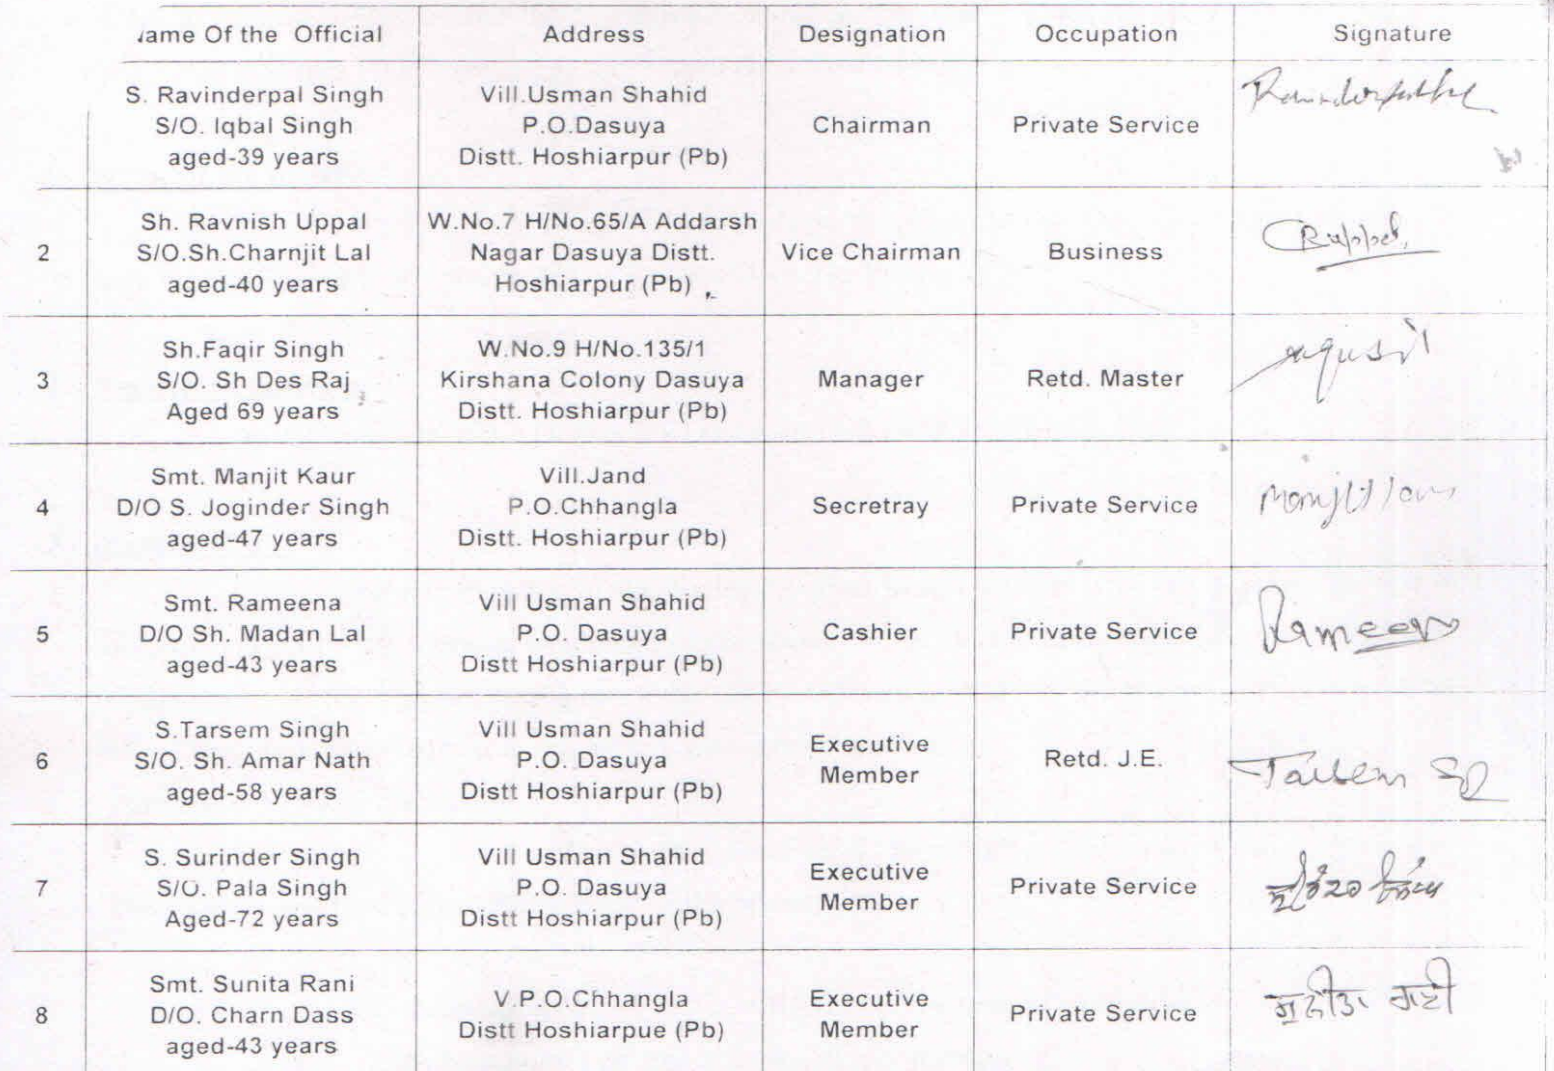 ame Of the Official Address Designation Occupation Signature
S. Ravinderpal Singh
S/O. Iqbal Singh
aged-39 years
Vill.Usman Shahid
P.O.Dasuya
Distt. Hoshiarpur (Pb)
Chairman
Private Service
2
Sh. Ravnish Uppal
S/O.Sh.Charnjit Lal
aged-40 years
W.No.7 H/No.65/A Addarsh
Nagar Dasuya Distt.
Hoshiarpur (Pb)
Vice Chairman
Business
3
Sh.Faqir Singh
S/O. Sh Des Raj
Aged 69 years
W.No.9 H/No.135/1
Kirshana Colony Dasuya
Distt. Hoshiarpur (Pb)
Manager
Retd. Master
4
Smt. Manjit Kaur
D/O S. Joginder Singh
aged-47 years
Vill.Jand
P.O.Chhangla
Distt. Hoshiarpur (Pb)
Secretray
Private Service
5
Smt. Rameena
D/O Sh. Madan Lal
aged-43 years
Vill Usman Shahid
P.O. Dasuya
Distt Hoshiarpur (Pb)
Cashier
Private Service
6
S.Tarsem Singh
S/O. Sh. Amar Nath
aged-58 years
Vill Usman Shahid
P.O. Dasuya
Distt Hoshiarpur (Pb)
Executive
Member
Retd. J.E.
7
S. Surinder Singh
S/O. Pala Singh
Aged-72 years
Vill Usman Shahid
P.O. Dasuya
Distt Hoshiarpur (Pb)
Executive
Member
Private Service
8
Smt. Sunita Rani
D/O. Charn Dass
aged-43 years
V.P.O.Chhangla
Distt Hoshiarpue (Pb)
Executive
Member
Private Service
ਸੁਨੀਤਾ ਰਾਣੀ